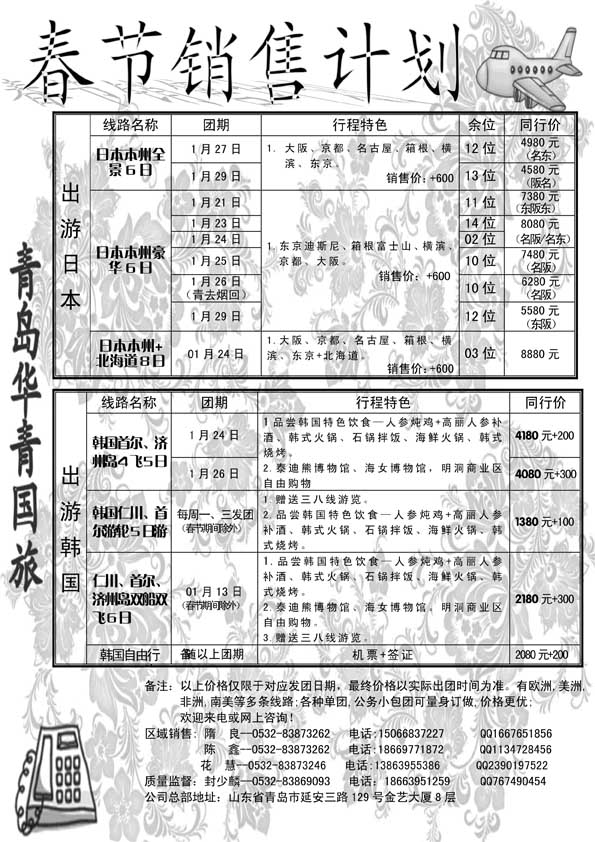 春节销售计划
青岛华青国旅
出游日本
线路名称 团期 行程特色 余位 同行价
日本本州全景6日
1月27日
1月29日
1. 大阪、京都、名古屋、箱根、横
滨、东京。
销售价:+600
12位 4980元
(名东)
13位 4580元
(阪名)
日本本州豪华6日
1月21日
1月23日
1月24日
1月25日
1月26日
(青去烟回)
1月29日
1.东京迪斯尼、箱根富士山、横滨、
京都、大阪。
销售价:+600
11位 7380元
(东阪东)
14位 8080元
02位 (名阪/名东)
10位 7480元
(名阪)
10位 6280元
(名阪)
12位 5580元
(东阪)
日本本州+
北海道8日
01月24日
1.大阪、京都、名古屋、箱根、横
滨、东京+北海道。
销售价:+600
03位 8880元
出游韩国
线路名称 团期 行程特色 同行价
韩国首尔、济
州岛4飞5日
1月24日
1月26日
1品尝韩国特色饮食—人参炖鸡+高丽人参补
酒、韩式火锅、石锅拌饭、海鲜火锅、韩式
烧烤。
2.泰迪熊博物馆、海女博物馆，明洞商业区
自由购物
4180元+200
4080元+300
韩国仁川、首
尔游轮5日游
每周一、三发团
(春节期间除外)
1.赠送三八线游览。
2.品尝韩国特色饮食—人参炖鸡+高丽人参
补酒、韩式火锅、石锅拌饭、海鲜火锅、韩
式烧烤。
1380元+100
仁川、首尔、
济州岛双船双
飞6日
01月13日
(春节期间除外)
1.品尝韩国特色饮食—人参炖鸡+高丽人参
补酒、韩式火锅、石锅拌饭、海鲜火锅、韩
式烧烤。
2.泰迪熊博物馆、海女博物馆，明洞商业区
自由购物。
3.赠送三八线游览。
2180元+300
韩国自由行 随以上团期 机票+签证 2080元+200
备注：以上价格仅限于对应发团日期，最终价格以实际出团时间为准。有欧洲,美洲,
非洲,南美等多条线路;各种单团,公务小包团可量身订做,价格更优;
欢迎来电或网上咨询!
区域销售：隋 良--0532-83873262 电话:15066837227 QQ1667651856
陈 鑫--0532-83873262 电话:18669771872 QQ1134728456
花 慧--0532-83873246 电话:13863955386 QQ2390197522
质量监督：封少麟--0532-83869093 电话：18663951259 QQ767490454
公司总部地址：山东省青岛市延安三路129号金艺大厦8层